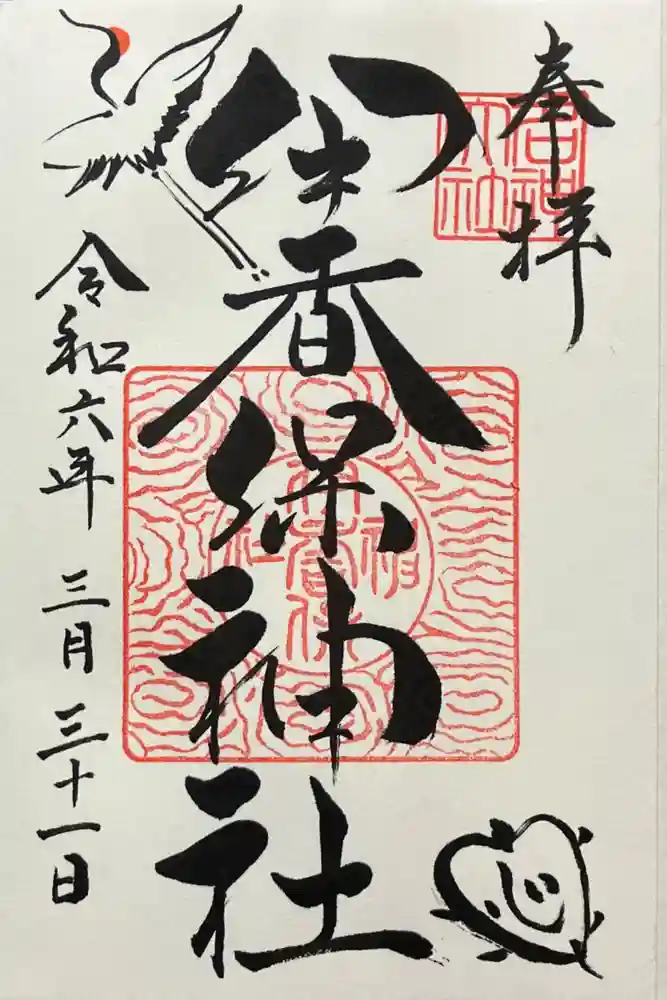 奉拝
香保神社
令和六年 三月 三十一日